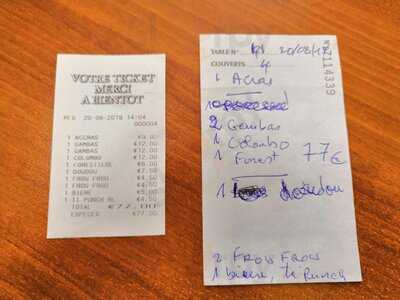 VOTRE TICKET
MERCI
A BIENTOT
REG 20-08-2018 14:04
000004
1 ACCRAS €9.00
1 GAMBAS €12.00
1 GAMBAS €12.00
1 COLOMBO €12.00
1 FORESTIERE
1 DOUDOU €7.50
1 FROU FROU €4.50
1 FROU FROU €4.50
1 BIERE €5.00
1 TI PUNCH €4.50
TOTAL €77.00
ESPECES €77.00
TABLE N° 20/08/18
COUVERTS 4
N° 7114339
1 Acras
2 Gambas
1 Colombo
1 Forest 77€
1 doudou
2 FROU FROU
1 biere, ti Punch